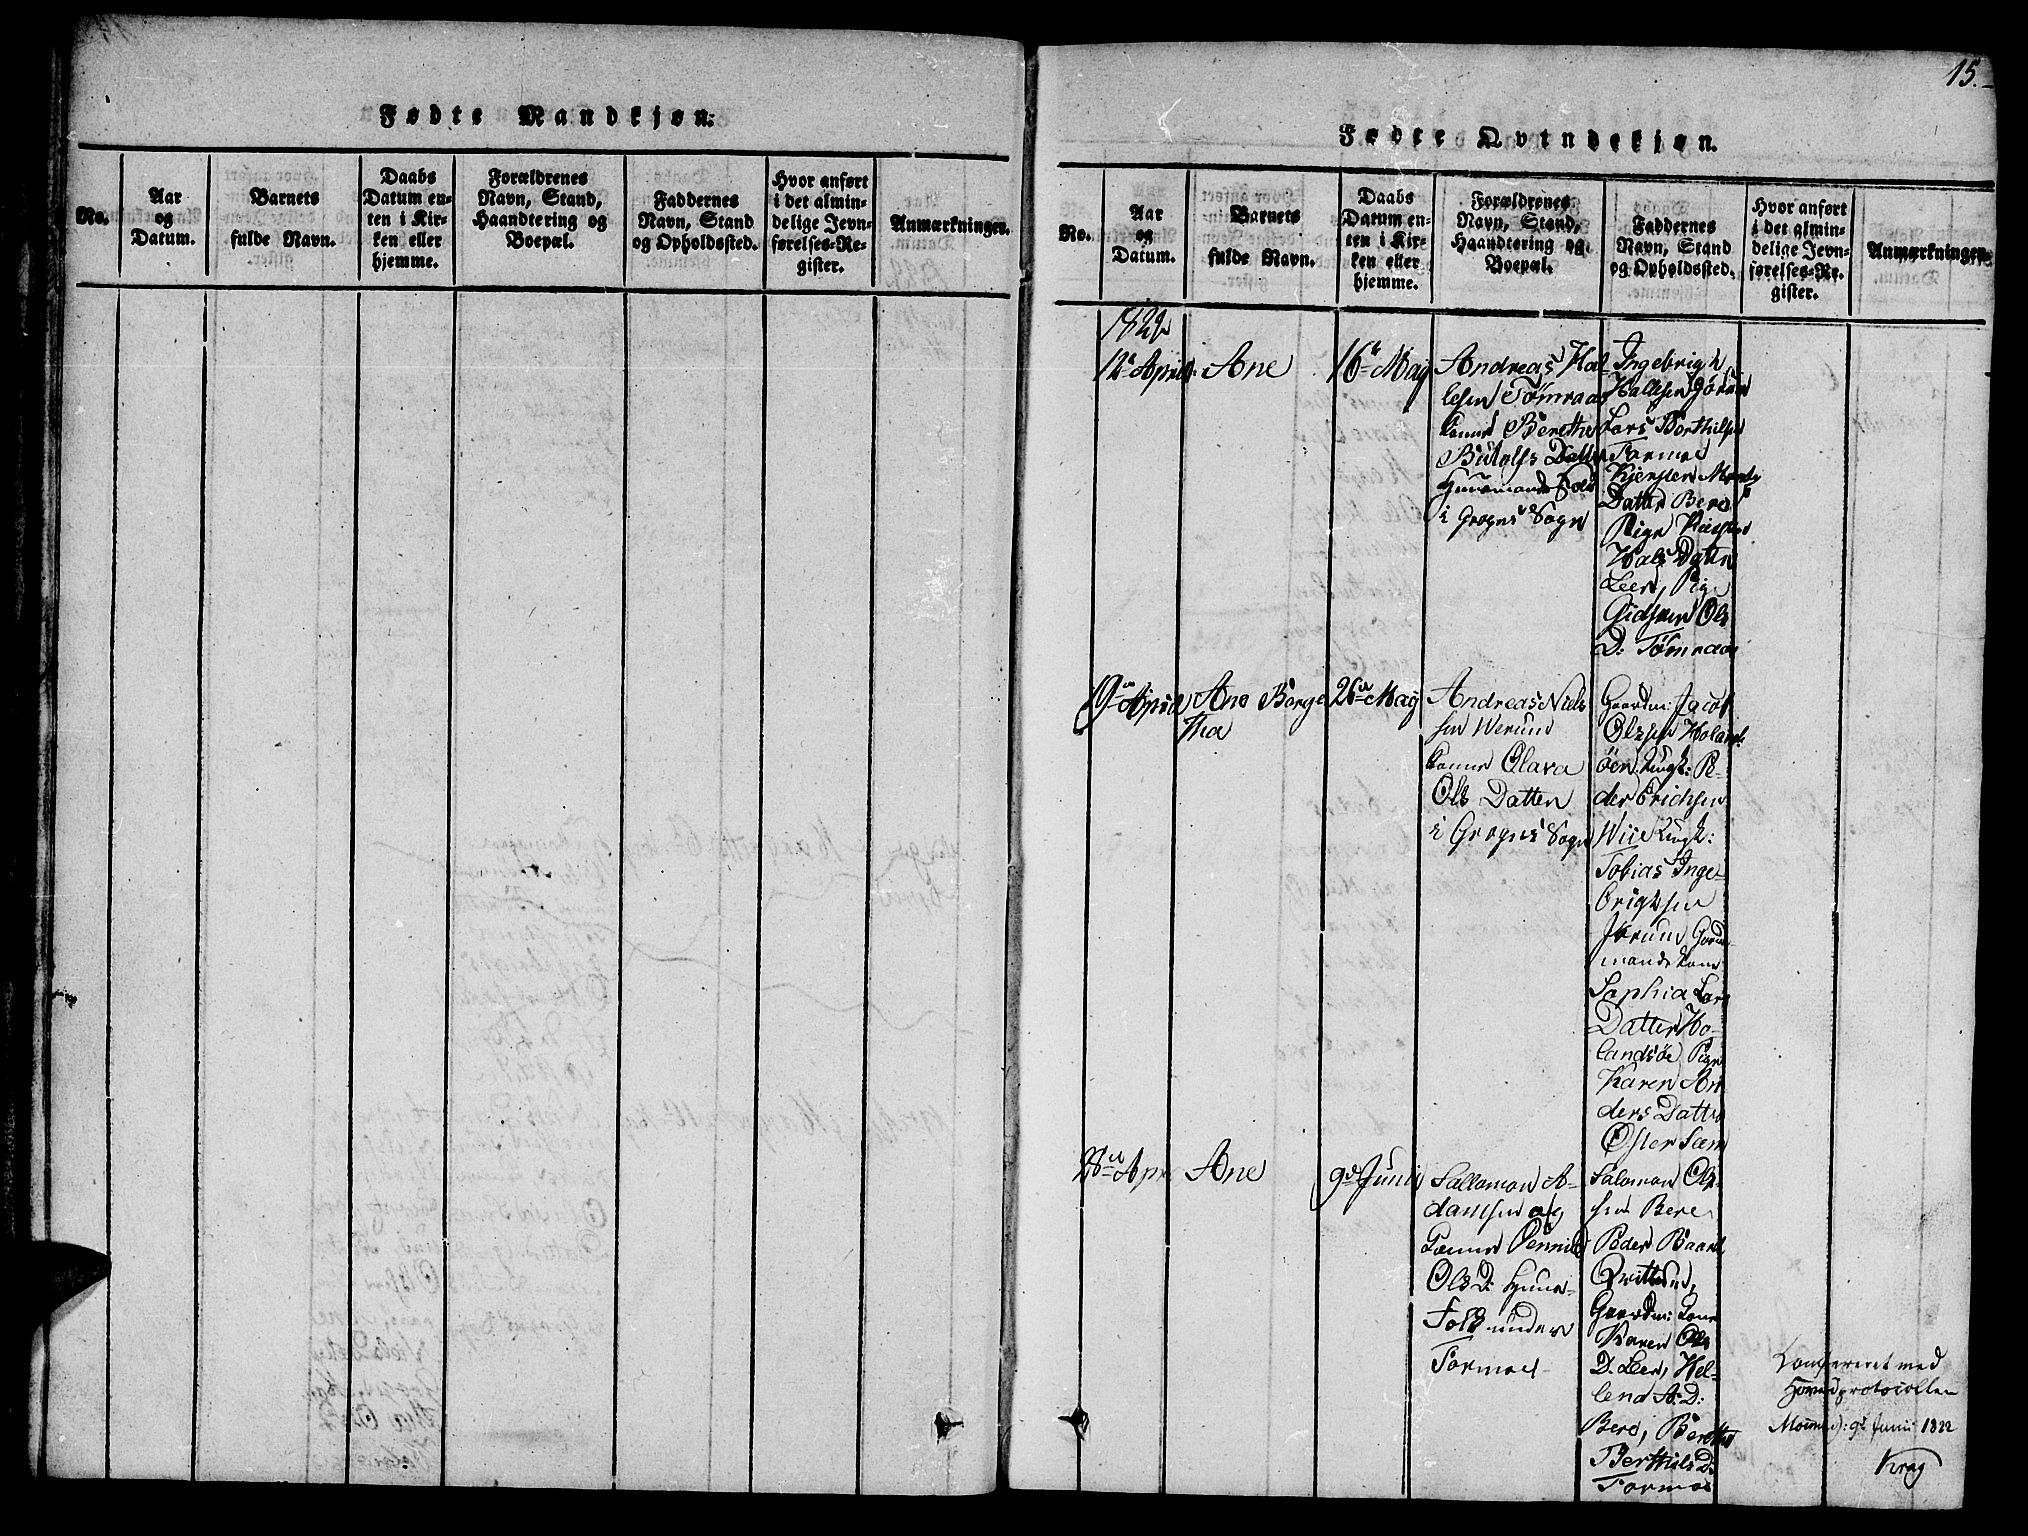 Fødte Mandkjøn:
No.
Aar
og
Datum.
Barnets
fulde Navn.
Daabs
Datum en-
ten i Kir-
ken eller
hjemme.
Forældrenes
Navn, Stand,
Haandtering og
Boepæl.
Faddernes
Navn, Stand
og Opholdssted.
Hvor anført
i det almin-
delige Jevn-
førelses-Re-
gister.
Anmærkninger.
15.
Fødte Qvindekjøn.
No.
Aar
og
Datum.
Barnets
fulde Navn.
Daabs
Datum en-
ten i Kir-
ken eller
hjemme.
Forældrenes
Navn, Stand,
Haandtering og
Boepæl.
Faddernes
Navn, Stand
og Opholdssted.
Hvor anført
i det almin-
delige Jevn-
førelses-Re-
gister.
Anmærkninger.
1822
12te April
Ane
16de May
Andreas Hal-
lesen Tømraas
Konne Berethe
Datter
i Grogns Sogn
Ingebrigh
Hallesen
Lars Berthilsen
Tormoe
Datter Bere
Pige
Hals Datter
Leer, Pige
Ols
D: Tømraas
19de April
Ane Berge
tha
26de May
Andreas Niels
sen Werum
Konne Olava
Ols Datter
i Grogns Sogn
Gaardm: Jacob
Olssen Holand-
øen Ungk: Pe-
der Erichsen
Wiie Ungk:
Tobias Inge-
brigtsen
Jørum Gaard-
mands Kone
Sophia Lars
Datter Ho-
landsøe Pige
Karen An-
ders Datter
Øster
28de April
Ane
9de Junii
Sallomon A-
damsen og
Konne Pernille
Ols D: Huus-
Folk under
Tormoe
Salomon Ol-
sen Bere
Peder Baard
Qvittund,
Gaardm: Kone
Karen Ols
D: Leer, Hel-
lena A: D:
Bere, Berethe
Berthels D:
Tormoe
Confereret med
Hovedprotocollen
9de Junii 1822
Krag